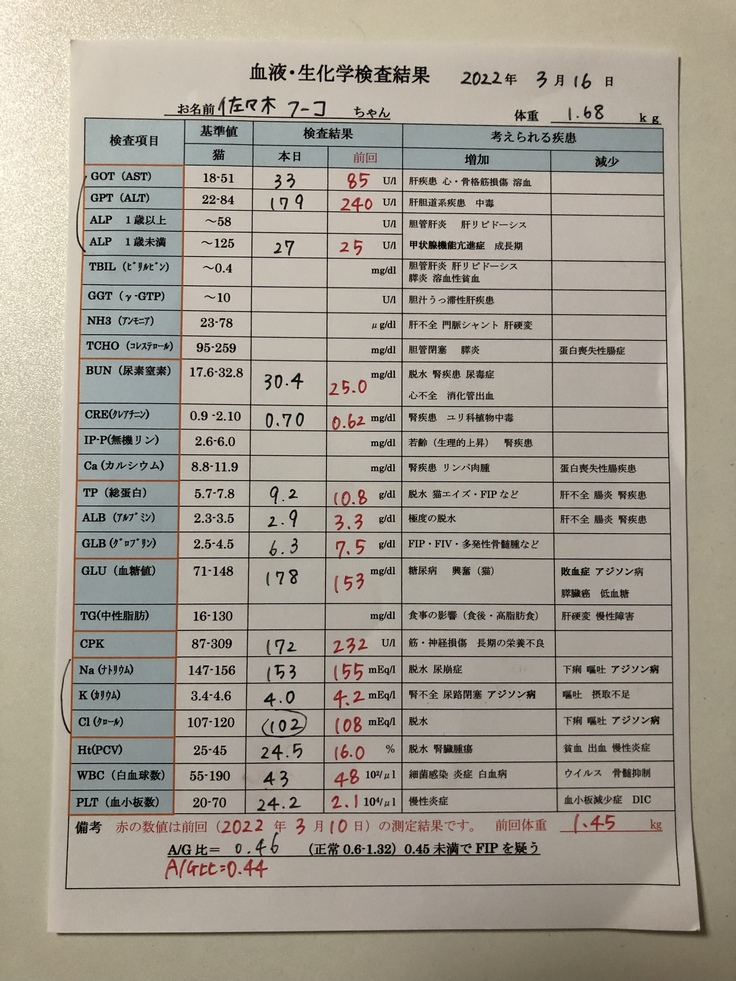 血液・生化学検査結果 2022年 3月16日
お名前 佐々木 フーコ ちゃん 体重 1.68 kg
検査項目 基準値 検査結果 考えられる疾患
猫 本日 前回 増加 減少
GOT (AST) 18-51 33 85 U/l 肝疾患 心・骨格筋損傷 溶血
GPT (ALT) 22-84 179 240 U/l 肝胆道系疾患 中毒
ALP 1歳以上 ～58 U/l 胆管肝炎 肝リピドーシス
ALP 1歳未満 ～125 27 25 U/l 甲状腺機能亢進症 成長期
TBIL (ﾋﾞﾘﾙﾋﾞﾝ) ～0.4 mg/dl 胆管肝炎 肝リピドーシス
膵炎 溶血性貧血
GGT (γ-GTP) ～10 U/l 胆汁うっ滞性肝疾患
NH3 (ｱﾝﾓﾆｱ) 23-78 μg/dl 肝不全 門脈シャント 肝硬変
TCHO (ｺﾚｽﾃﾛｰﾙ) 95-259 mg/dl 胆管閉塞 膵炎 蛋白喪失性腸症
BUN (尿素窒素) 17.6-32.8 30.4 25.0 mg/dl 脱水 腎疾患 尿毒症
心不全 消化管出血
CRE(ｸﾚｱﾁﾆﾝ) 0.9 -2.10 0.70 0.62 mg/dl 腎疾患 ユリ科植物中毒
IP-P(無機リン) 2.6-6.0 mg/dl 若齢（生理的上昇） 腎疾患
Ca (カルシウム) 8.8-11.9 mg/dl 腎疾患 リンパ肉腫 蛋白喪失性腸疾患
TP (総蛋白) 5.7-7.8 9.2 10.8 g/dl 脱水 猫エイズ・FIPなど 肝不全 腸炎 腎疾患
ALB (ｱﾙﾌﾞﾐﾝ) 2.3-3.5 2.9 3.3 g/dl 極度の脱水 肝不全 腸炎 腎疾患
GLB (ｸﾞﾛﾌﾞﾘﾝ) 2.5-4.5 6.3 7.5 g/dl FIP・FIV・多発性骨髄腫など
GLU (血糖値) 71-148 178 153 mg/dl 糖尿病 興奮（猫） 敗血症 アジソン病
膵臓癌 低血糖
TG(中性脂肪) 16-130 mg/dl 食事の影響（食後・高脂肪食） 肝硬変 慢性障害
CPK 87-309 172 232 U/l 筋・神経損傷 長期の栄養不良
Na (ﾅﾄﾘｳﾑ) 147-156 153 155 mEq/l 脱水 尿崩症 下痢 嘔吐 アジソン病
K (ｶﾘｳﾑ) 3.4-4.6 4.0 4.2 mEq/l 腎不全 尿路閉塞 アジソン病 嘔吐 摂取不足
Cl (ｸﾛｰﾙ) 107-120 102 108 mEq/l 脱水 下痢 嘔吐 アジソン病
Ht(PCV) 25-45 24.5 16.0 % 脱水 腎臓腫瘍 貧血 出血 慢性炎症
WBC (白血球数) 55-190 43 48 10²/μl 細菌感染 炎症 白血病 ウイルス 骨髄抑制
PLT (血小板数) 20-70 24.2 2.1 10⁴/μl 慢性炎症 血小板減少症 DIC
備考 赤の数値は前回（2022 年 3月10日）の測定結果です。 前回体重 1.45 kg
A/G 比＝ 0.46 （正常 0.6-1.32）0.45 未満で FIP を疑う
A/G比=0.44